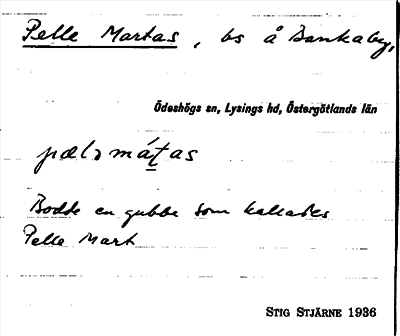 Pelle Martas, bs å Bankaby,
Ödeshögs sn, Lysings hd, Östergötlands län
pælə má̱tas
Bodde en gubbe som kallades
Pelle Mart
STIG STJÄRNE 1936